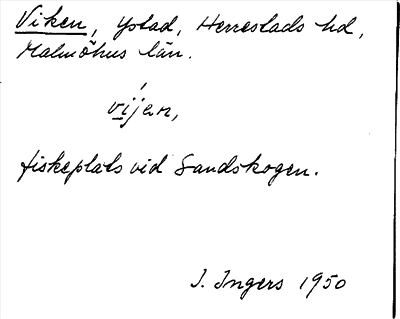 Viken, Ystad, Herrestads hd,
Malmöhus län.
víjen,
fiskeplats vid Sandskogen.
I. Ingers 1950